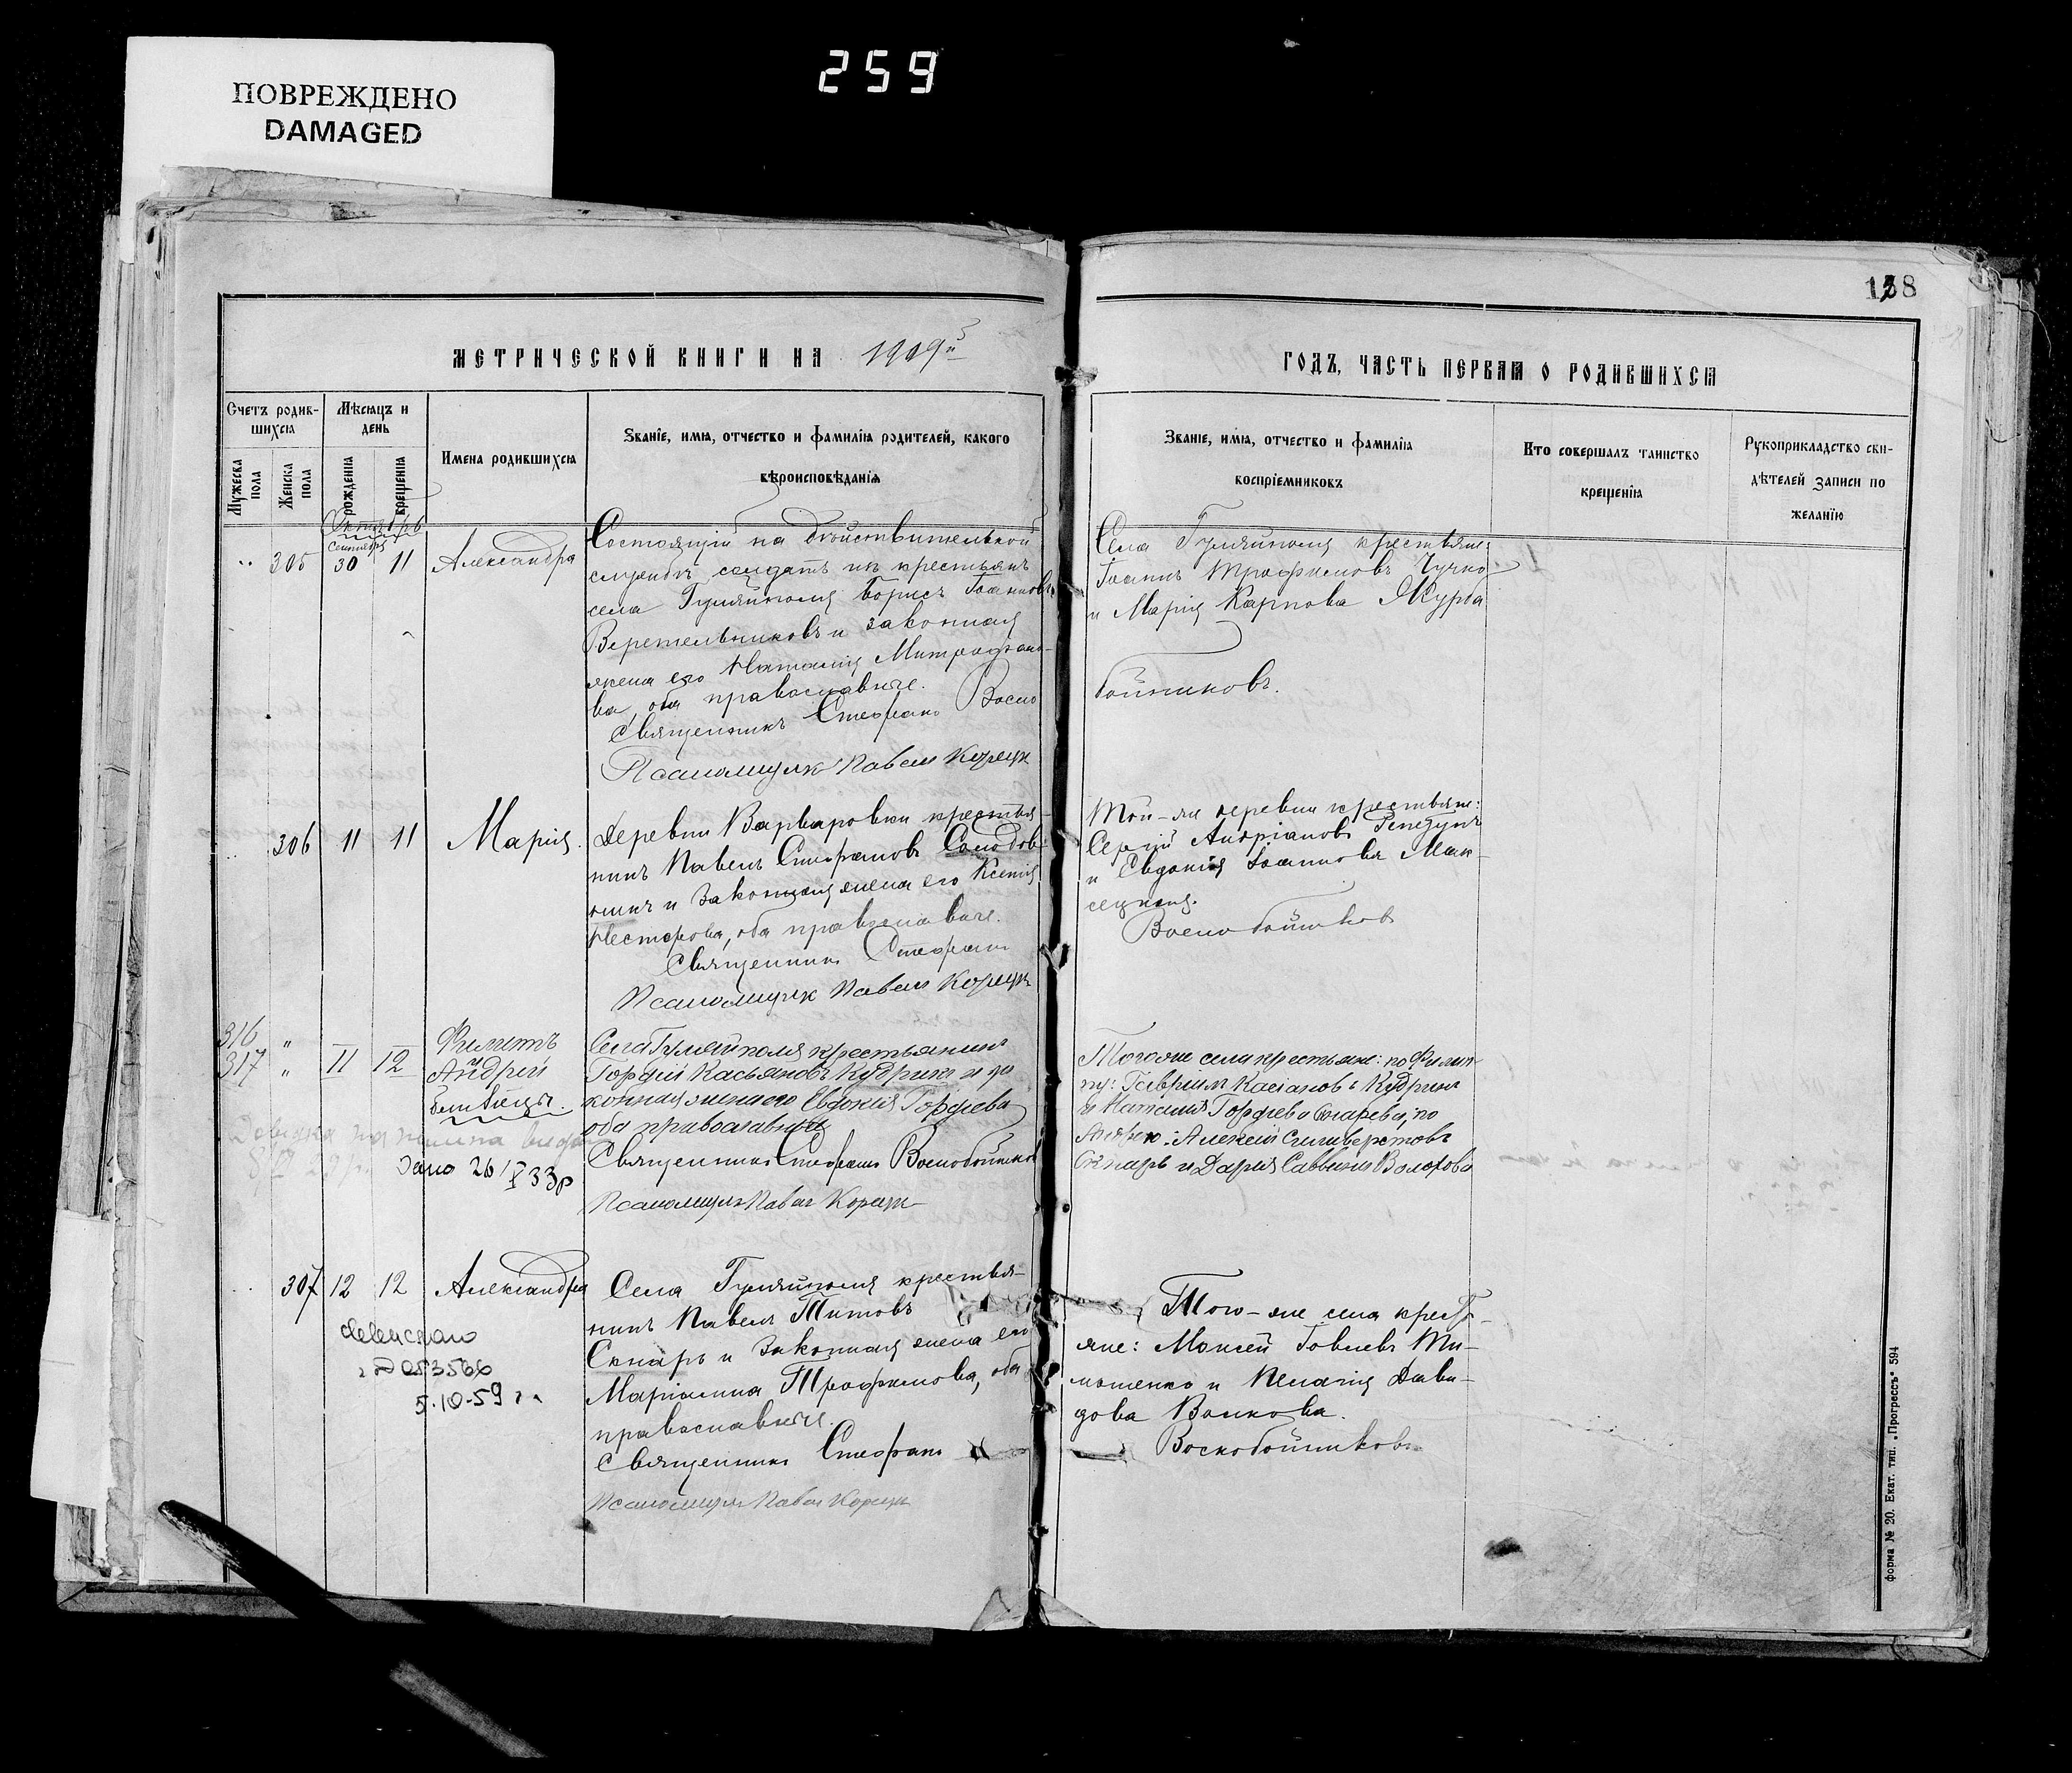 259
ПОВРЕЖДЕНО
DAMAGED
138
МЕТРИЧЕСКОЙ КНИГИ НА 1909й
ГОДЪ, ЧАСТЬ ПЕРВАЯ О РОДИВШИХСЯ
Счетъ родив-
шихся
Мужеска пола
Женска пола
Мѣсяцъ и
день
рожденія
крещенія
Имена родившихся
Званіе, имя, отчество и фамилія родителей, какого
вѣроисповѣданія
Званіе, имя, отчество и фамилія
воспріемниковъ
Кто совершалъ таинство
крещенія
Рукоприкладство сви-
дѣтелей записи по
желанію
Октябрь
Сентября
305 30 11 Александра
Состоящій на дѣйствительной
службѣ солдатъ изъ крестьянъ
села Гуляйполя Борисъ Іоанновъ
Веретельниковъ и законная
жена его Наталія Митрофано-
ва, оба православные.
Священникъ Стефанъ Воско
Псаломщикъ Павелъ Корецк
Села Гуляйполя крестьяне:
Іоаннъ Трофимовъ Чучко
и Марія Карпова Журба
бойниковъ.
306 11 11 Марія.
Деревни Варваровки крестья-
нинъ Павелъ Стефановъ Солодов-
никъ и законная жена его Ксенія
Нестерова, оба православные.
Священникъ Стефанъ
Псаломщикъ Павелъ Корецк
Той-же деревни крестьяне:
Сергій Андріановъ
и Евдокія Іоаннова Мак-
сецкая.
Воскобойниковъ
316 "
317 " 11 12
Филиппъ
и
Андрей
близнецы.
Села Гуляйполя крестьянинъ
Гордій Касьяновъ Кудринъ и за
конная жена его Евдокія Гордіева
оба православные
Священникъ Стефанъ Воскобойников
Псаломщикъ Павелъ Корецк
Того же села крестьяне: по Филип-
пу: Гавріилъ Касіановъ Кудринъ
и Наталія Гордіева Скнарева; по
Андрею: Алексій Силиверстовъ
Скнарь и Дарія Саввина Волохова
26/X 33р
307 12 12 Александра
Села Гуляйполя крестья-
нинъ Павелъ Титовъ
Скнарь и законная жена его
Маріамна Трофимова, оба
православные.
Священникъ Стефанъ
Псаломщикъ Павелъ Корецк
Того-же села кресть-
яне: Моисей Іовлевъ Ти-
мошенко и Пелагія Дави-
дова Волкова.
Воскобойниковъ
053566
5.10.59 г.
Форма № 20. Екат. тип. „Прогрессъ" 594